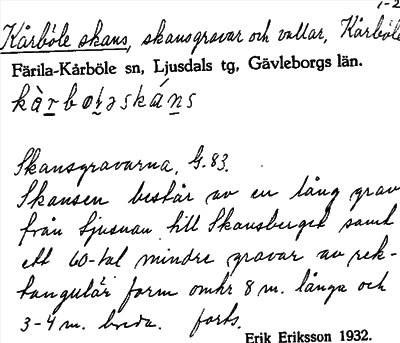 1-2
Kårböle skans, skansgravar och vallar, Kårböle
Färila-Kårböle sn, Ljusdals tg, Gävleborgs län.
kàrbøḷəskáṇs
Skansgravarna, G.83.
Skansen består av en lång grav
från Ljusnan till Skansberget samt
ett 60-tal mindre gravar av rek-
tangulär form omkr 8 m. långa och
3-4 m. breda. forts.
Erik Eriksson 1932.